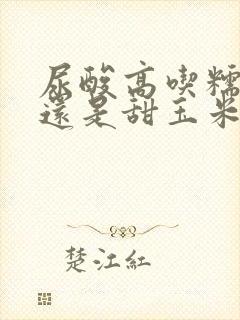 尿酸高喫糯
還是甜玉米
楚江紅